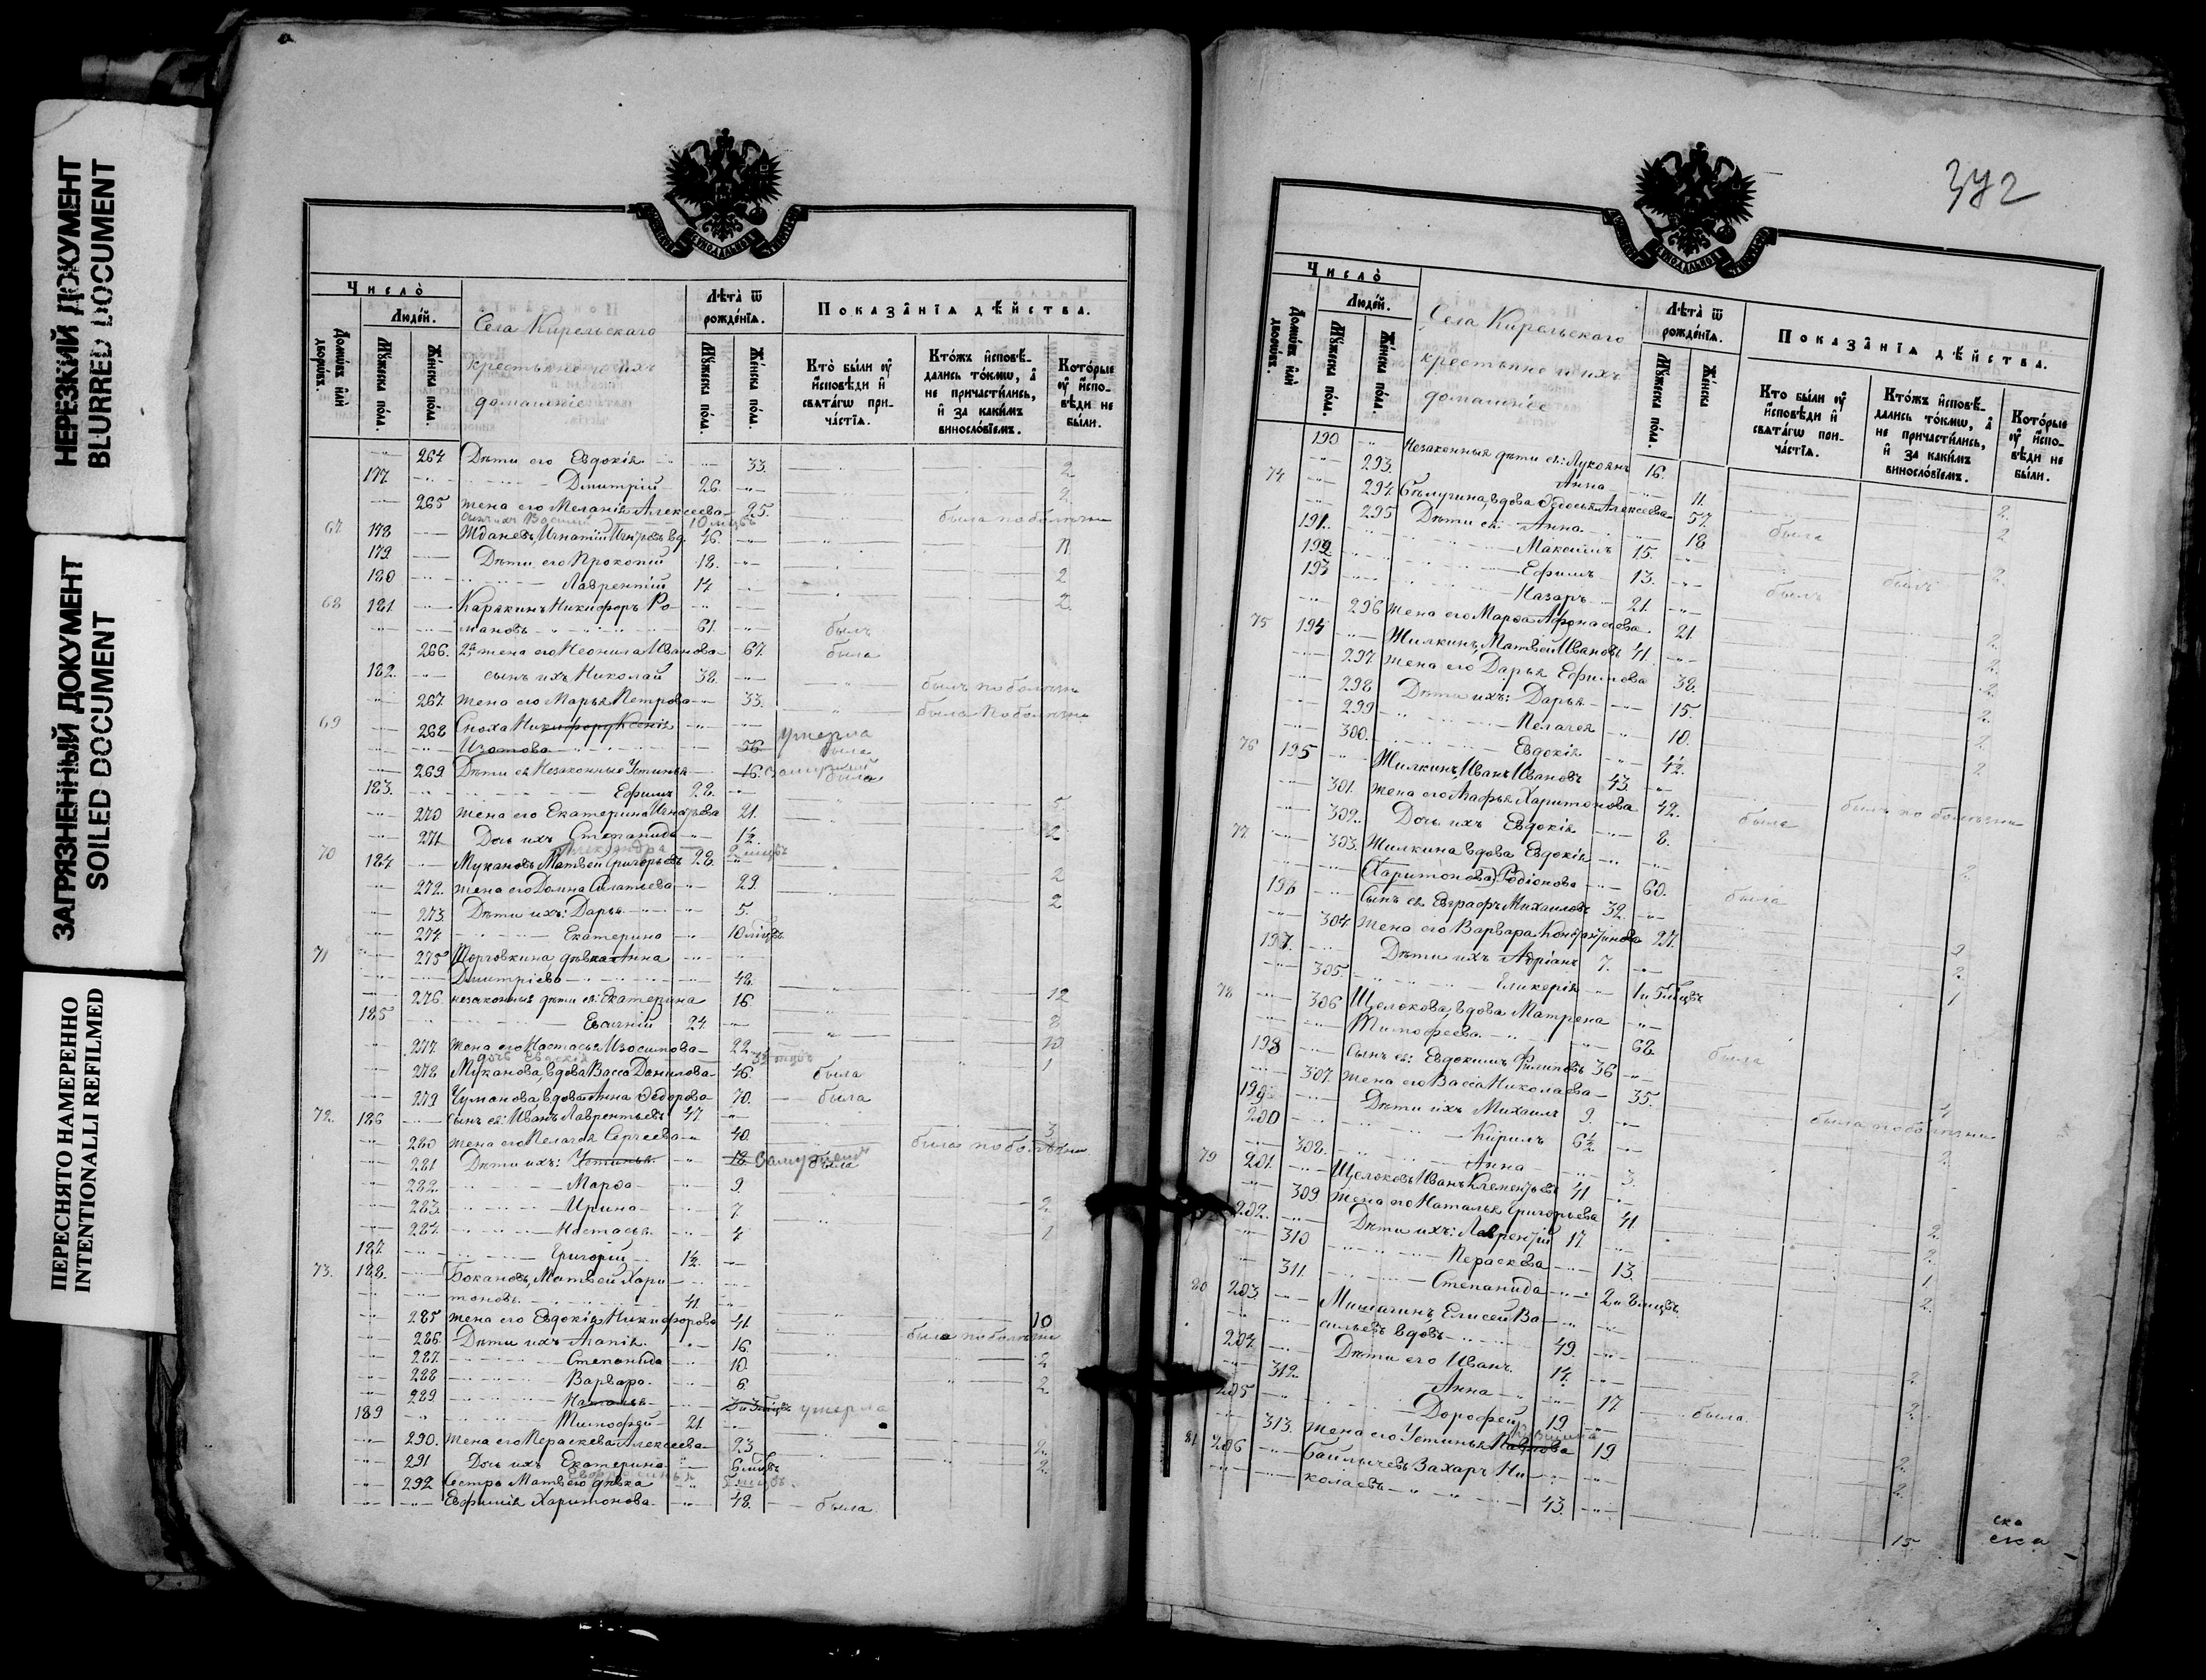 НЕРЕЗКИЙ ДОКУМЕНТ
BLURRED DOCUMENT
ЗАГРЯЗНЕННЫЙ ДОКУМЕНТ
SOILED DOCUMENT
ПЕРЕСНЯТО НАМЕРЕННО
INTENTIONALLI REFILMED
Число̀
Людéй.
Домѡ́въ илѝ дворѡ́въ.
Мꙋ́жеска пóла.
Жéнска пóла.
Села Кирельскаго
крестьяне и ихъ
домашніе
Лѣта̀ ѿ рождéнїѧ.
Мꙋ́жеска пóла.
Жéнска пóла.
Показа̑нїѧ дѣ́йства.
Кто̀ бы́ли ᲂу҆ и҆́сповѣди и҆ свѧта́гѡ прича́стїѧ.
Кто́жъ и҆сповѣ́дались то́кмѡ, а҆ не причасти́лись, и҆ за каки́мъ винослóвїемъ.
Котóрые ᲂу҆ и҆́сповѣди не бы́ли.
264 Дѣти его Евдокія 33. 2
177 Дмитрій 26. 2
265 жена его Меланія Алексеева 25. была по болѣзни
сынъ ихъ Василій 10 мцвъ
67 178 Ждановъ, Игнатій вд. 46. 11
179. Дѣти его Прокопій 18. 2
180 Лаврентій 14 2
68 181 Карякинъ Никифоръ Ро-
мановъ 61. былъ
266. 2я жена его Неонила Иванова 67. была
182. сынъ ихъ Николай 38. былъ по болѣзни
267. жена его Марья Петрова 33. была по болѣзни
69 268 Сноха Никифору Ксенія умерла
Изотова 56. была
269. Дѣти ея незаконные Устинья 16. была
183. Ефимъ 22. 5
270 жена его Екатерина 21. 2
271 Дочь ихъ Степанида 1½
Александра 2 мцвъ
70 184 Мукановъ Матвей Григорьевъ 28. 2
272. жена его Домна 29. 2
273. Дѣти ихъ: Дарья 5.
274 Екатерина 10 мцвъ
71 275 Торговкина, дѣвка Анна
Дмитріева 48. 12
276. незаконныя дѣти ея: Екатерина 16. 8
185 Евсигній 24. 10
277. жена его Настасья Изосимова 22. 1
дочь Евдокія
278 Муканова, вдова Васса Данилова 46. была
279 Чуманова, вдова Анна Ѳедорова 70. была
72. 186 сынъ ея: Иванъ Лаврентьевъ 47 3
280 жена его Пелагея Сергеева 40. была по болѣзни
281 Дѣти ихъ: Устинья 18 была
282. Марѳа 9. 2
283. Ирина 7. 1
284. Настасья 4
187. Григорій 1½
73. 188. Бокановъ, Матвей Хари-
тоновъ 41. 10
285 жена его Евдокія Никифорова 41. была по болѣзни
286. Дѣти ихъ Агапія 16. 2
287. Степанида 10. 2
288 Варвара 6.
289. Наталья 3 и 3 мцвъ умерла
189 Тимофей 21 2
290. жена его Пераскева Алексеева 23 2
291 Дочь ихъ Екатерина 6 мцвъ
292 Сестра Матвею дѣвка
Евфимія Харитонова 48. была
372
Число̀
Людéй.
Домѡ́въ илѝ дворѡ́въ.
Мꙋ́жеска пóла.
Жéнска пóла.
Села Кирельскаго
крестьяне и ихъ
домашніе
Лѣта̀ ѿ рождéнїѧ.
Мꙋ́жеска пóла.
Жéнска
Показа̑нїѧ дѣ́йства.
Кто̀ бы́ли ᲂу҆ и҆́сповѣди и҆ свѧта́гѡ прича́стїѧ.
Кто́жъ и҆сповѣ́дались то́кмѡ, а҆ не причасти́лись, и҆ за каки́мъ винослóвїемъ.
Котóрые ᲂу҆ и҆́сповѣди не бы́ли.
190 Незаконныя дѣти ея: Лукоянъ 16. 2.
293. Анна 11. 2
74 294. Бѣлугина, вдова Ѳедосья Алексеева 57. была
295 Дѣти ея: Анна 18 2.
191. Максимъ 15. былъ
192 Ефимъ 13. былъ
193 Назаръ 21. 2.
296 жена его Марѳа Афонасьева 21. 2.
75 194 Жилкинъ, Матвей Ивановъ 41. 2.
297. жена его Дарья Ефимова 38. 2.
298 Дѣти ихъ: Дарья 15. 2.
299 Пелагея 10. 2
300. Евдокія 4½.
76 195 Жилкинъ, Иванъ Ивановъ 43. былъ по болѣзни
301. жена его Агафья Харитонова 42. была
302. Дочь ихъ Евдокія 8. 2.
77 303. Жилкина вдова Евдокія
(Харитонова) Родіонова 60. была
196 Сынъ ея Евграфъ Михаиловъ 32. 2
304 жена его Варвара 27. 2.
197. Дѣти ихъ Адріанъ 7. 1
305. Гликерія 1 и 5 мцвъ
78 306 Щелокова, вдова Матрена
Тимофеева 68. была
198 сынъ ея: Евдокимъ Филиповъ 36 4
307. жена его Васса Николаева 35. была по болѣзни
199 Дѣти ихъ Михаилъ 9. 2.
200 Кирилъ 6½
308. Анна 3.
79 201. Щелоковъ, Иванъ Клементьевъ 41 2.
309 жена его Наталья Григорьева 41. 2.
202. Дѣти ихъ: Лаврентій 17. 1.
310 Пераскева 13. 2.
311. Степанида 2 и 8 мцвъ
80 203. Мишагинъ, Елисей Ва-
сильевъ вдовъ 49. 2.
204. Дѣти его Иванъ 14. 2.
312. Анна 17 была.
205 Дорофей 19 2.
313. жена его Устинья Павлова 19. 2.
81 206 Захаръ Ни-
колаевъ 43. 15